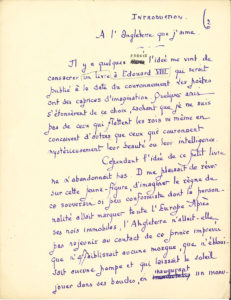 INTRODUCTION.
2
A l'Angleterre que j'aime
Il y a quelques mois l'idée me vint de
consacrer un livre à Edouard VIII, qui serait
publié à la date du couronnement. Les poètes
ont des caprices d'imagination. Quelques uns
s'étonnèrent de ce choix, sachant que je ne suis
pas de ceux qui flattent les rois ni même en
concevant d'autres que ceux que couronnent
mystérieusement leur beauté ou leur intelligence.
Cependant l'idée de ce petit livre
ne m'abandonnait pas. Il me plaisait de rêver
sur cette jeune figure, d'imaginer le règne du
ce souverain si peu conformiste dont la person-
nalité allait marquer toute l'Europe. Après
ses rois immobiles, l'Angleterre n'allait-elle
pas rajeunir au contact de ce prince imprévu
que n'affaiblissait aucune morgue, que n'éblouis-
sait aucune pompe et qui laissait le soleil
jouer dans ses boucles, en inaugurant un monu-